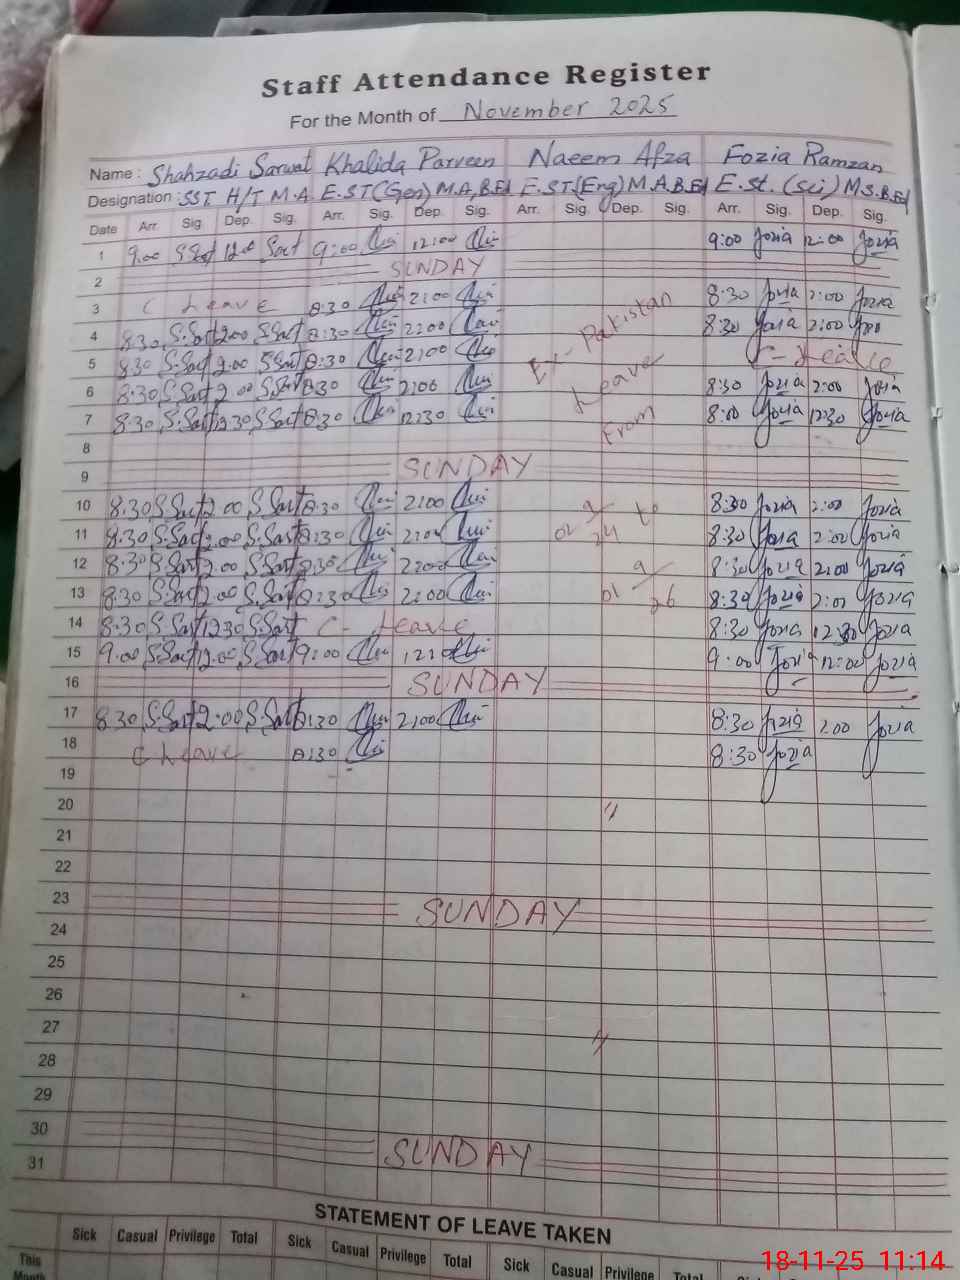 Staff Attendance Register
For the Month of November 2025
Name : Shahzadi Sarwat Khalida Parveen Naeem Afza Fozia Ramzan
Designation : SST H/T M.A E.ST(Gen) M.A,B.Ed E.ST(Eng) M.A.B.Ed E.st. (sci) M.S.B.Ed
Date Arr. Sig. Dep. Sig. Arr. Sig. Dep. Sig. Arr. Sig. Dep. Sig. Arr. Sig. Dep. Sig.
1 9.00 S.Sart 12.00 Sart 9:00 12:00 9:00 Fozia 12:00 Fozia
2 SUNDAY
3 C Leave 8:30 2:00 8:30 Fozia 2:00 Fozia
4 8.30 S.Sart 2.00 S.Sart 8:30 2:00 Ex-Pakistan 8:30 Fozia 2:00 Fozia
5 8.30 S.Sart 2.00 S.Sart 8:30 2:00 Leave C-Leave
6 8.30 S.Sart 2.00 S.Sart 8:30 2:00 8:30 Fozia 2:00 Fozia
7 8.30 S.Sart 12.30 S.Sart 8:30 12:30 From 8:00 Fozia 12:30 Fozia
8
9 SUNDAY
10 8.30 S.Sart 2.00 S.Sart 8:30 2:00 8:30 Fozia 2:00 Fozia
11 8.30 S.Sart 2.00 S.Sart 8:30 2:00 02 9/24 to 8:30 Fozia 2:00 Fozia
12 8.30 S.Sart 2.00 S.Sart 8:30 2:00 8:30 Fozia 2:00 Fozia
13 8.30 S.Sart 2.00 S.Sart 8:30 2:00 01 9/26 8:30 Fozia 2:00 Fozia
14 8.30 S.Sart 12.30 S.Sart C-Leave 8:30 Fozia 12:30 Fozia
15 9.00 S.Sart 12.00 S.Sart 9:00 9:00 Fozia 12:00 Fozia
16 SUNDAY
17 8.30 S.Sart 2.00 S.Sart 8:30 2:00 8:30 Fozia 2.00 Fozia
18 C Leave 8:30 8:30 Fozia
19
20 "
21
22
23 SUNDAY
24
25
26
27 "
28
29
30 SUNDAY
31
STATEMENT OF LEAVE TAKEN
Sick Casual Privilege Total Sick Casual Privilege Total Sick Casual Privilege Total
This Month
18-11-25 11:14